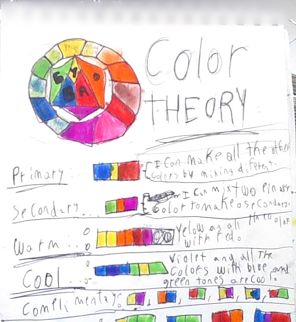 Color
THEORY
Primary
I Can make all the other
Colors by mixing different.
Secondary
I Can mix two
color to make a secondary.
Warm
Yellow
with red.
COOL
Violet and all the
colors with blue and
green tones are cool.
Complimentary